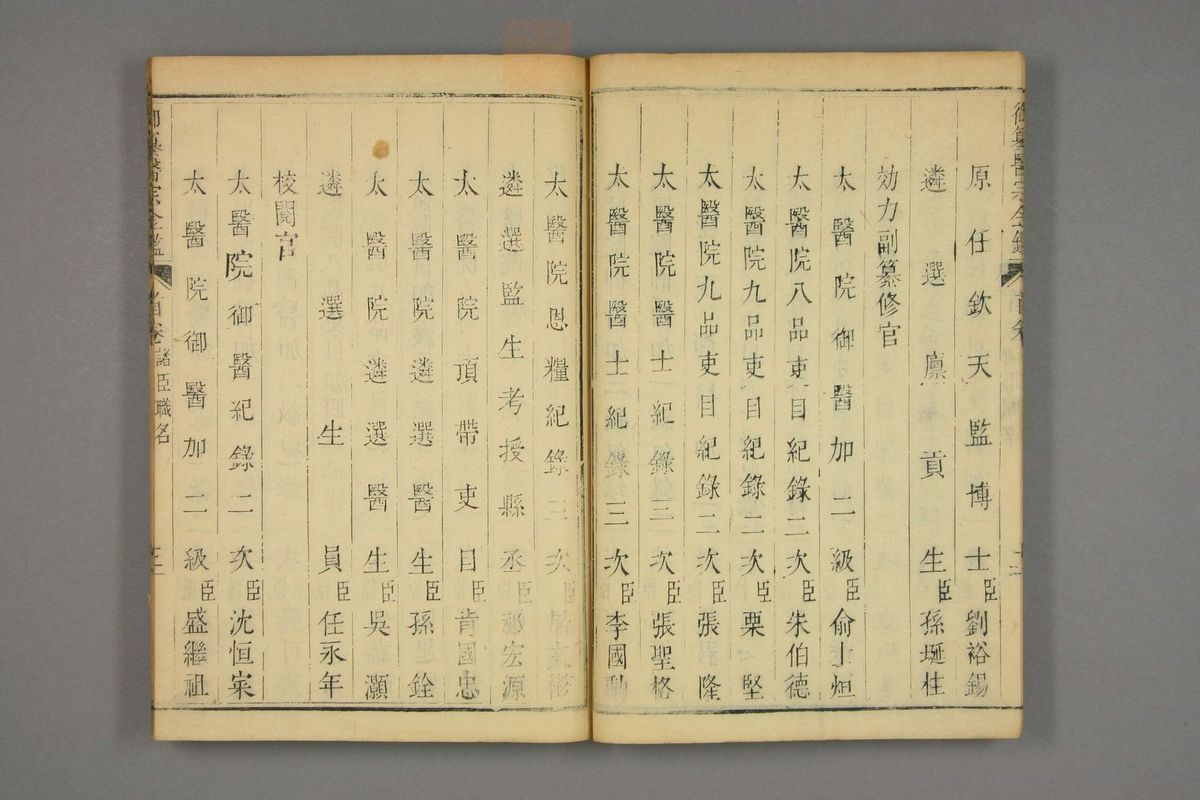 御纂醫宗金鑑
原任欽天監博士臣劉裕錫
遴選廩貢生臣孫埏柱
效力副纂修官
太醫院御醫加二級臣俞士烜
太醫院八品吏目紀錄二次臣朱伯德
太醫院九品吏目紀錄二次臣栗堅
太醫院九品吏目紀錄二次臣張隆
太醫院醫士紀錄三次臣張聖格
太醫院醫士紀錄三次臣李國勳
太醫院恩糧紀錄三次臣屠文彬
遴選監生考授縣丞臣祁宏源
太醫院頂帶吏目臣肯國忠
太醫院遴選醫生臣孫足銓
太醫院遴選醫生臣吳灝
遴選生員臣任永年
校閱官
太醫院御醫紀錄二次臣沈恒寀
太醫院御醫加二級臣盛繼祖
御纂醫宗金鑑 首卷 諸臣職名